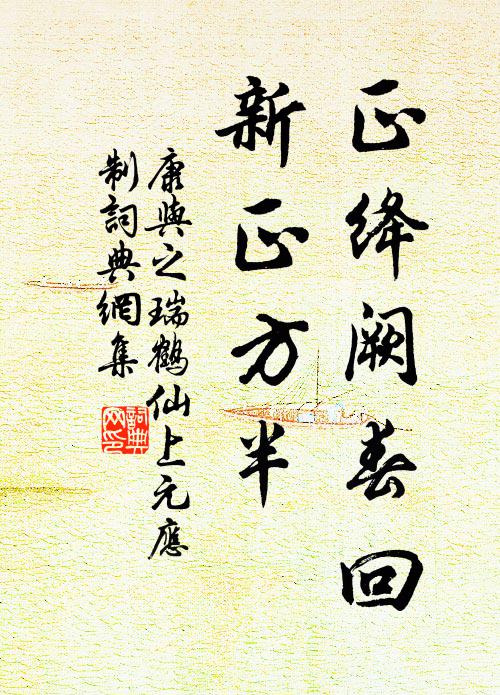 正絳闕春回
新正方半
康與之瑞鶴仙上元應
制詞典網集
詞典
网印